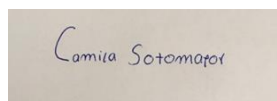 Camila Sotomayor